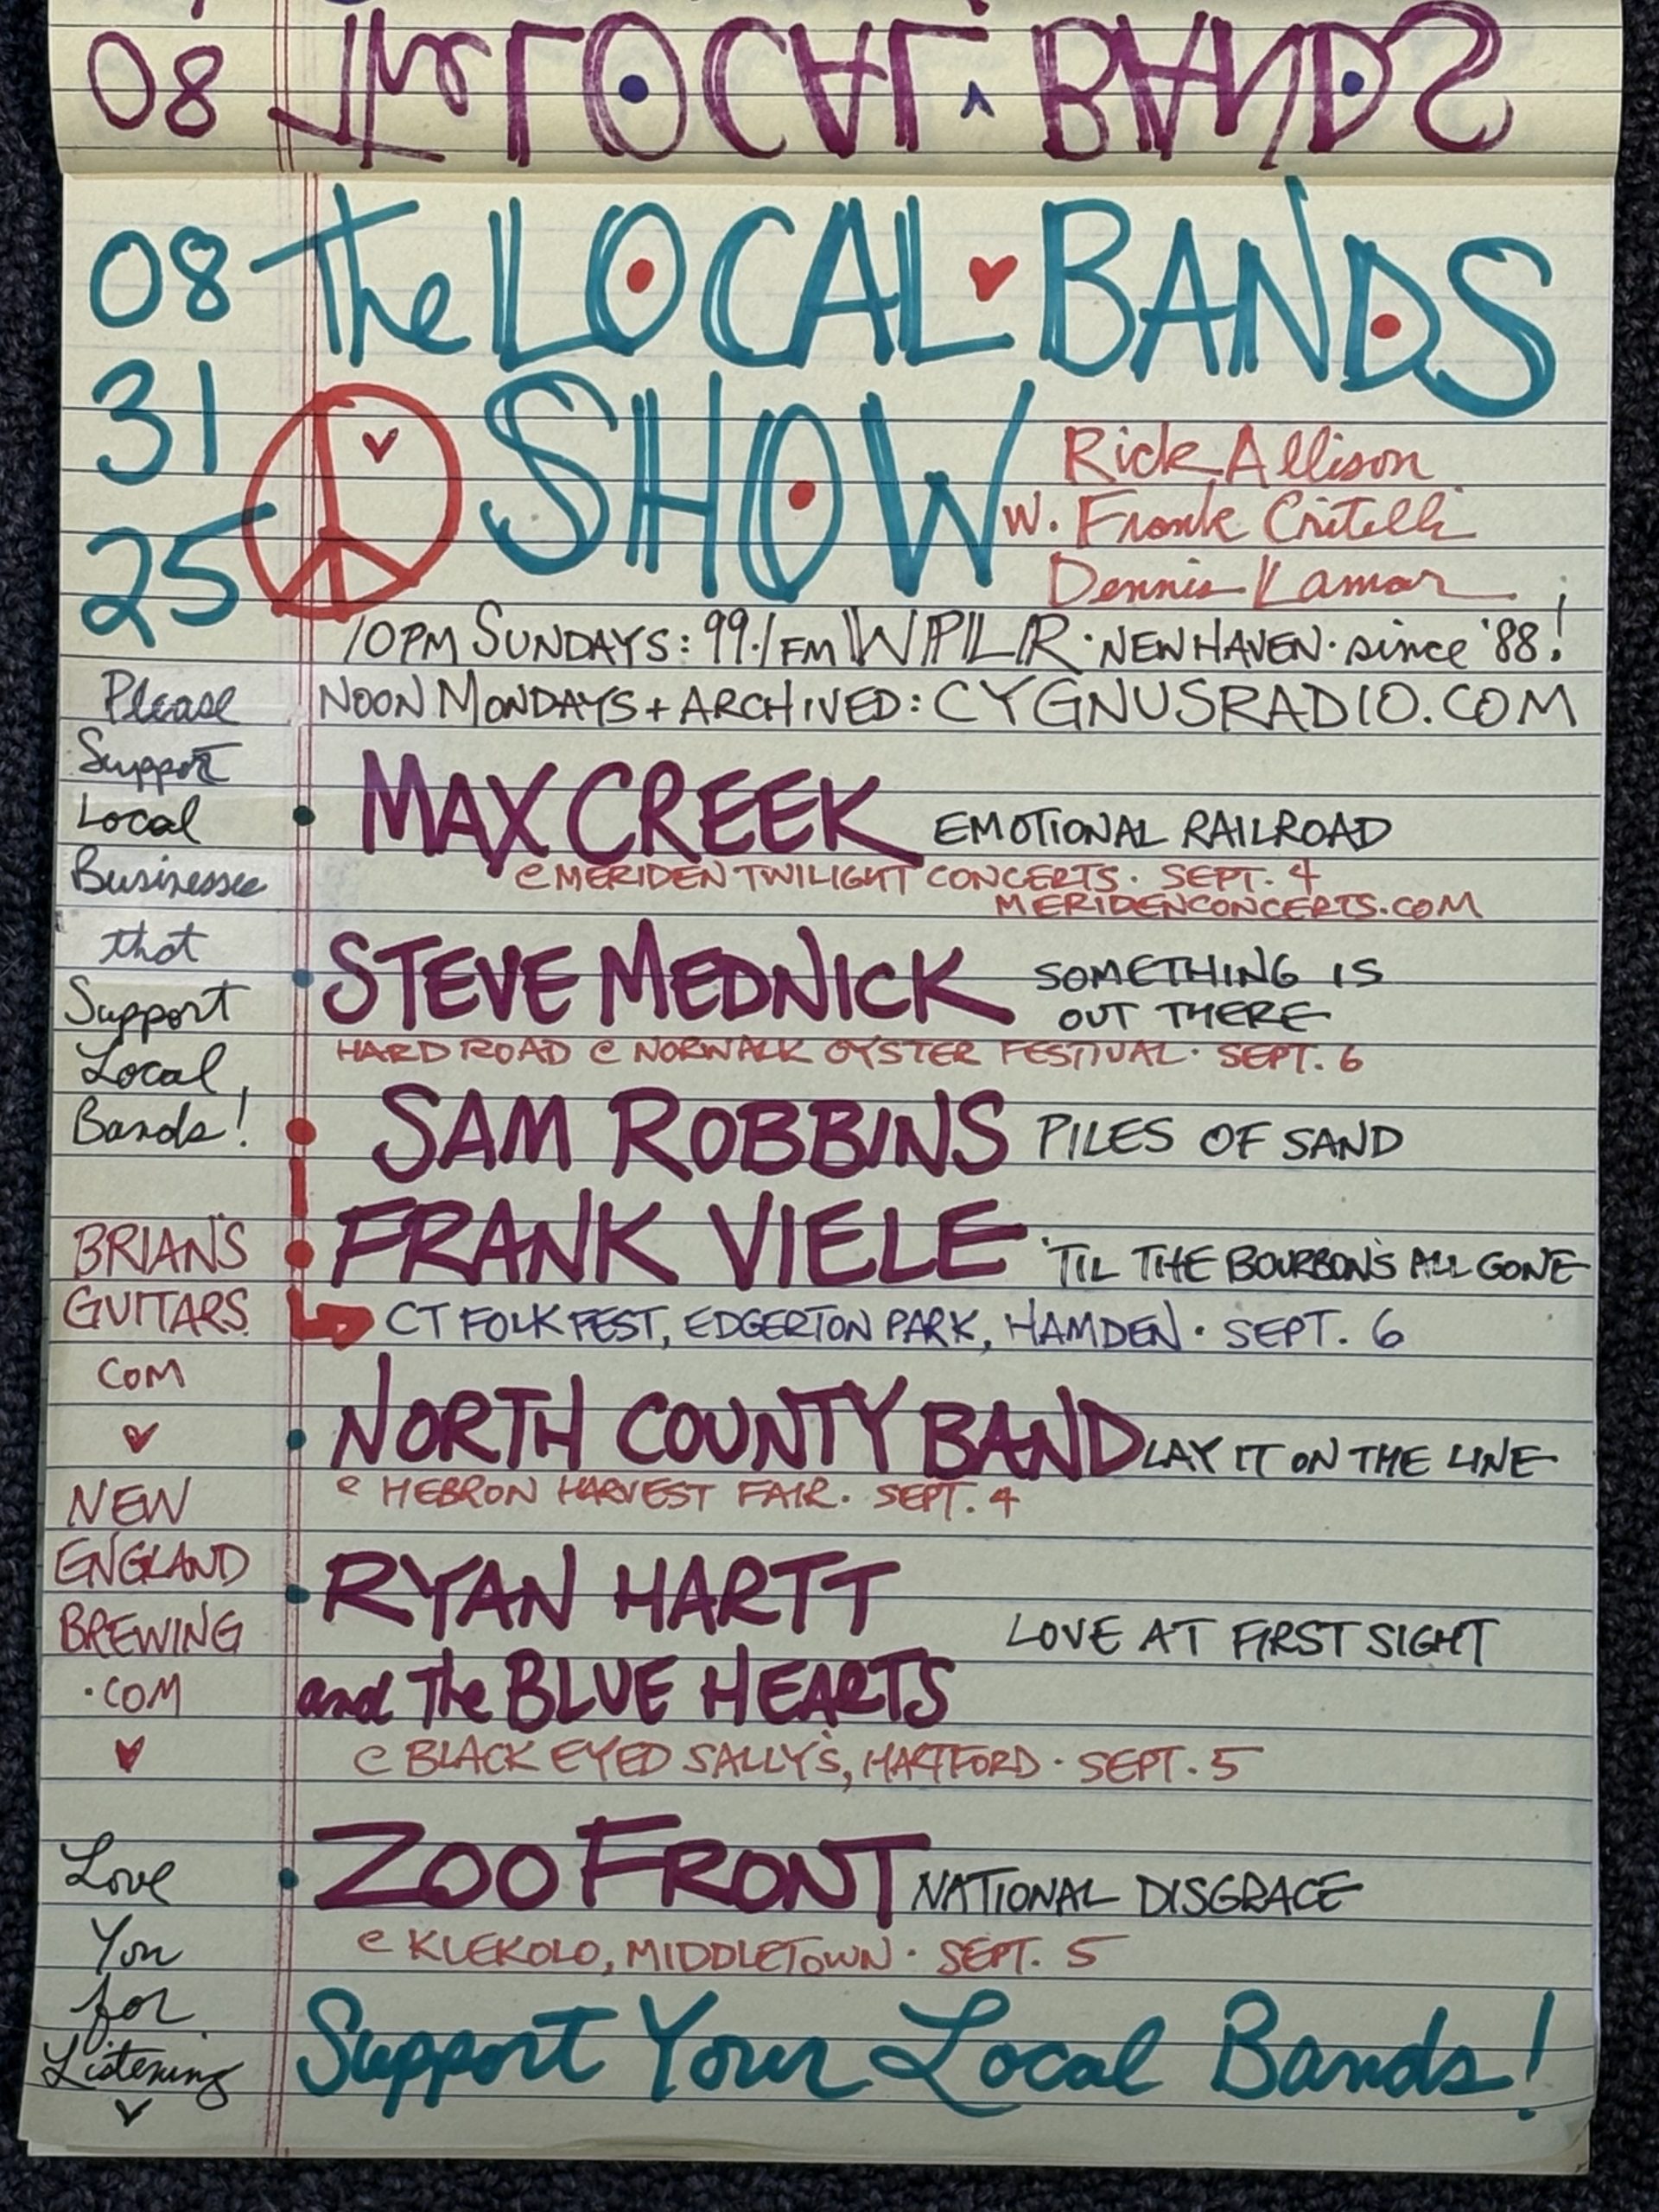 08 The LOCAL BANDS
08 The LOCAL BANDS
31 SHOW
25
Rick Allison
w. Frank Critelli
Dennis Lamar
10PM SUNDAYS: 99.1FM WPLR · NEW HAVEN · since '88!
NOON MONDAYS + ARCHIVED: CYGNUSRADIO.COM
Please
Support
Local
Businesses
that
Support
Local
Bands!
BRIAN'S
GUITARS.
COM
NEW
ENGLAND
BREWING
.COM
Love
You
for
Listening
MAX CREEK EMOTIONAL RAILROAD
@ MERIDEN TWILIGHT CONCERTS · SEPT. 4
MERIDENCONCERTS.COM
STEVE MEDNICK SOMETHING IS
OUT THERE
HARD ROAD @ NORWALK OYSTER FESTIVAL · SEPT. 6
SAM ROBBINS PILES OF SAND
FRANK VIELE 'TIL THE BOURBON'S ALL GONE
CT FOLK FEST, EDGERTON PARK, HAMDEN · SEPT. 6
NORTH COUNTY BAND LAY IT ON THE LINE
@ HEBRON HARVEST FAIR · SEPT. 4
RYAN HARTT
and The BLUE HEARTS LOVE AT FIRST SIGHT
@ BLACK EYED SALLY'S, HARTFORD · SEPT. 5
ZOO FRONT NATIONAL DISGRACE
@ KLEKOLO, MIDDLETOWN · SEPT. 5
Support Your Local Bands!